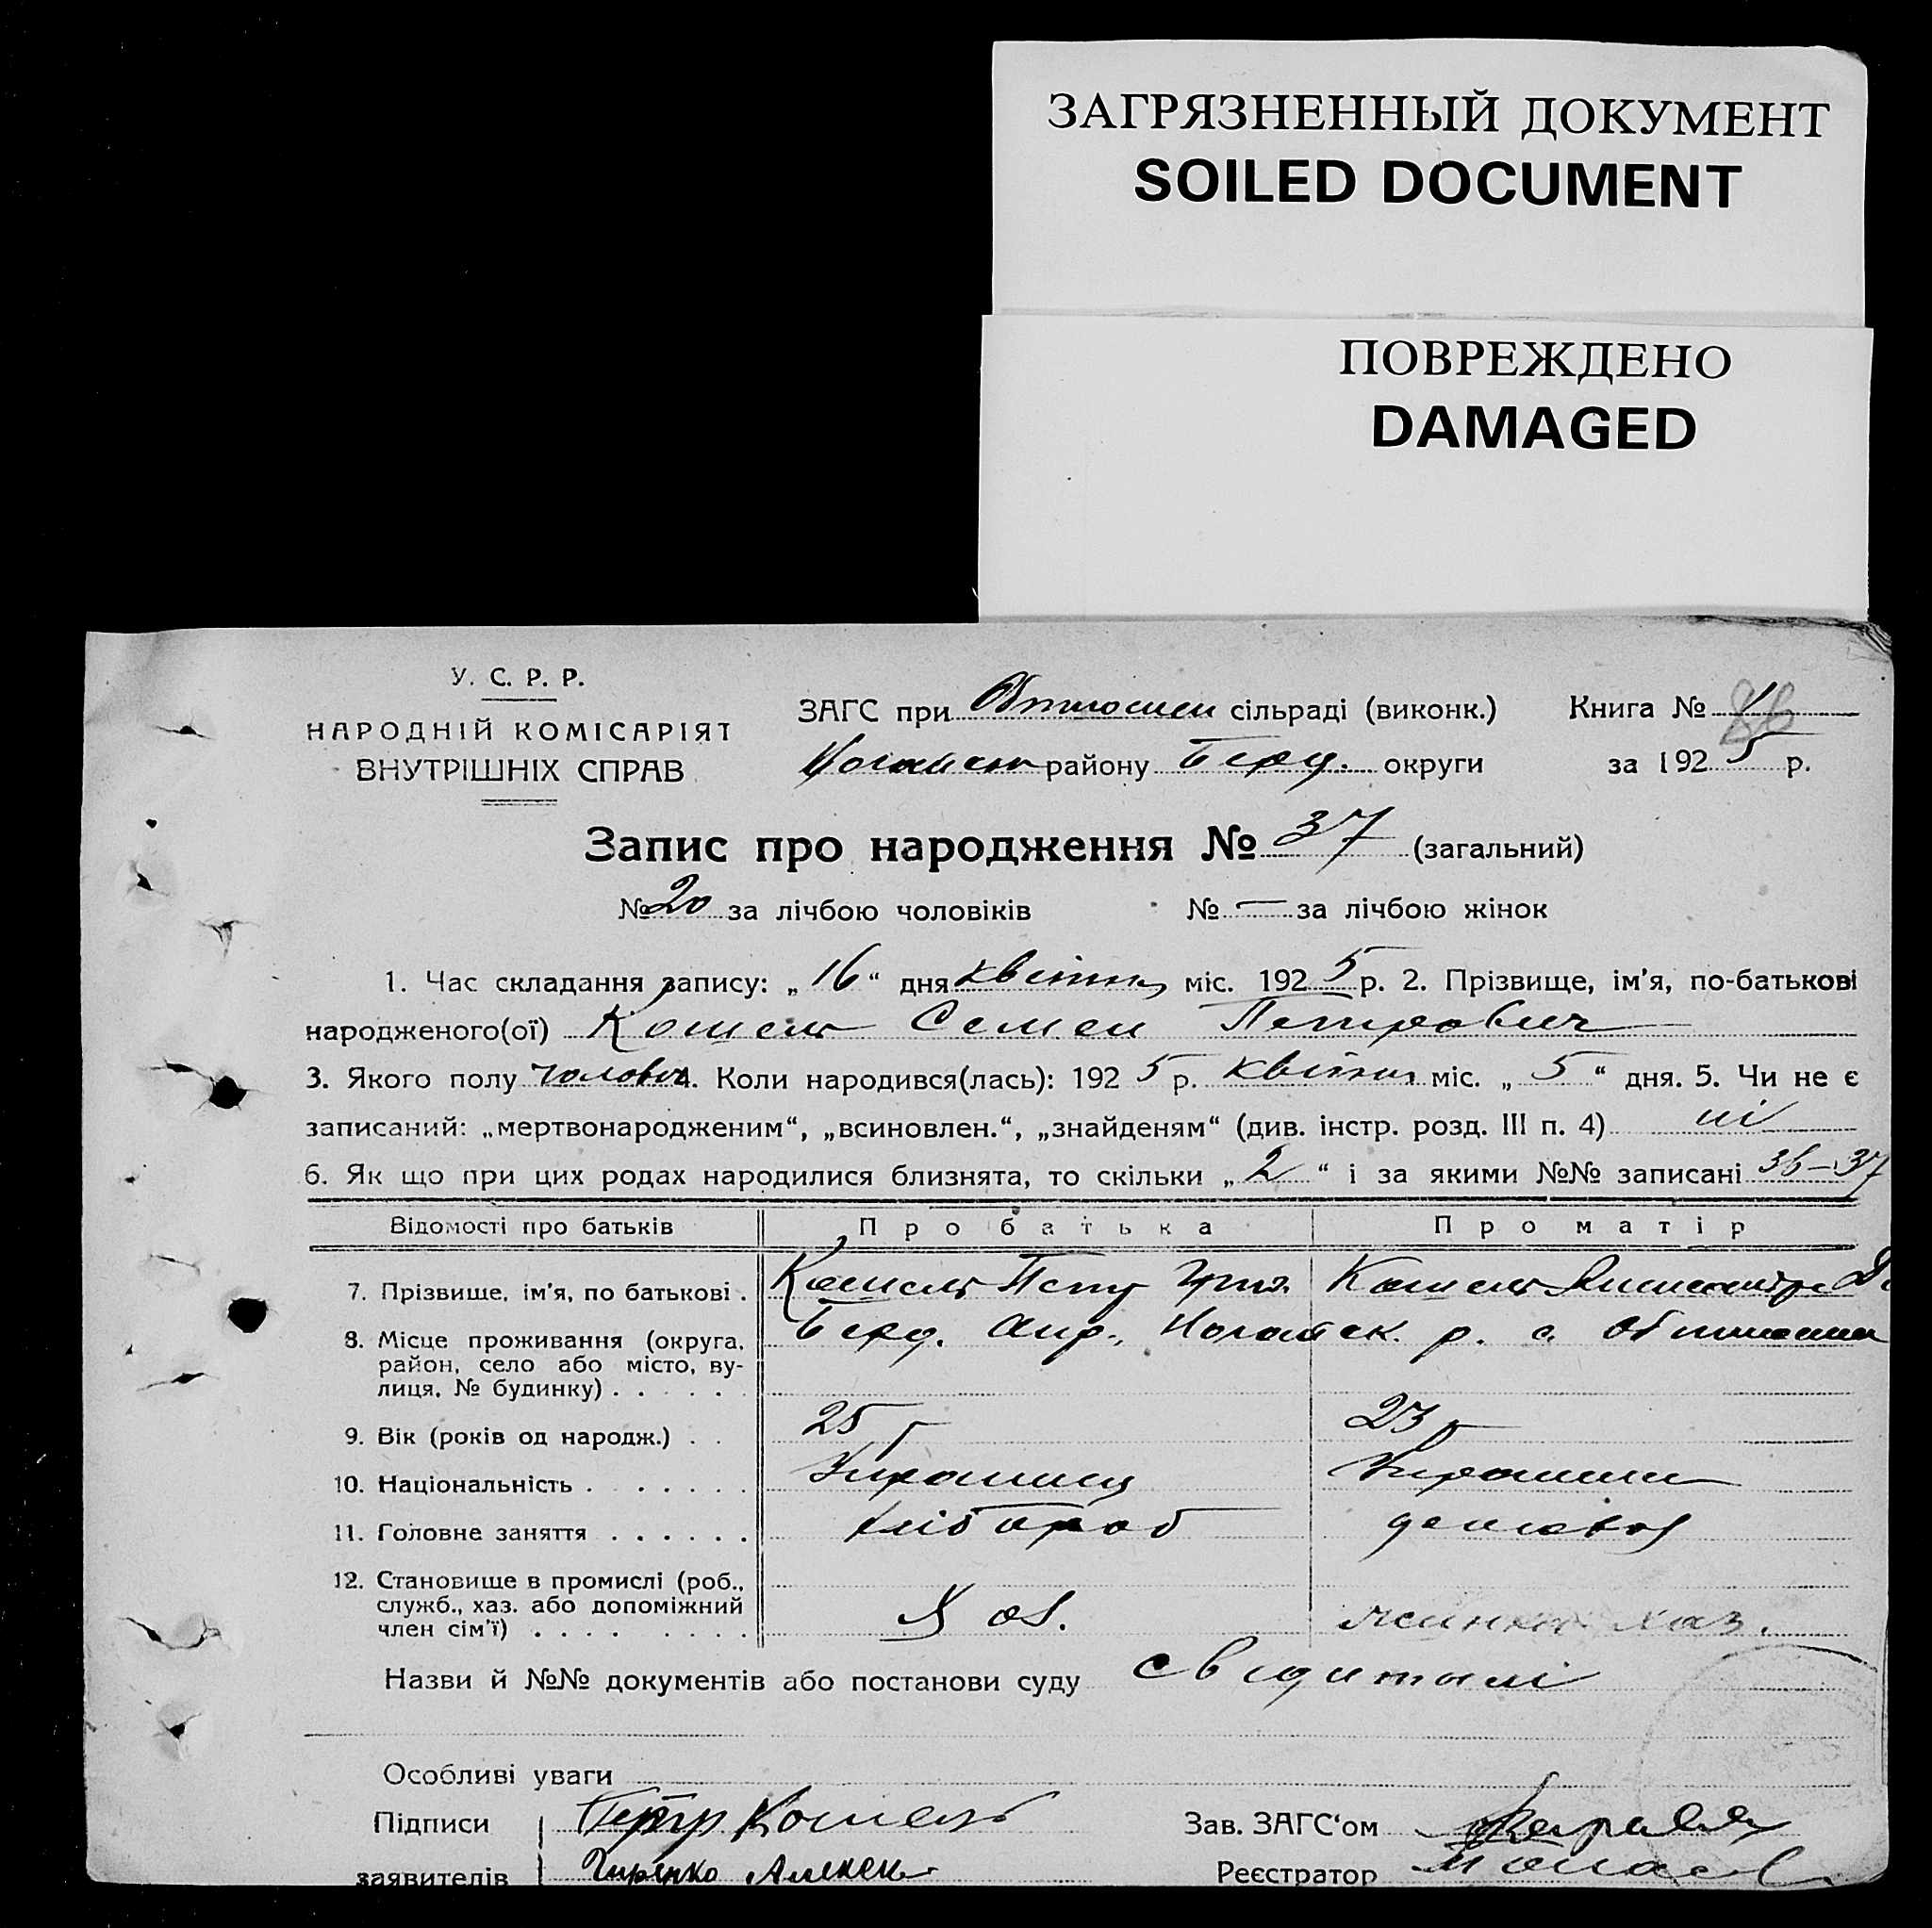 ЗАГРЯЗНЕННЫЙ ДОКУМЕНТ
SOILED DOCUMENT
ПОВРЕЖДЕНО
DAMAGED
У. С. Р. Р.
НАРОДНІЙ КОМІСАРІЯТ
ВНУТРІШНІХ СПРАВ
ЗАГС при сільраді (виконк.) Книга №
району Берд. округи за 1925 р.
Запис про народження № 37 (загальний)
№ 20 за лічбою чоловіків № — за лічбою жінок
1. Час складання запису: „16“ дня квітня міс. 1925 р. 2. Прізвище, ім'я, по-батькові
народженого(ої) Кошель Семен Петрович
3. Якого полу чоловіч. 4. Коли народився(лась): 1925 р. квітня міс. „5“ дня. 5. Чи не є
записаний: „мертвонародженим“, „всиновлен.“, „знайденям“ (див. інстр. розд. III п. 4) ні
6. Як що при цих родах народилися близнята, то скільки „2“ і за якими №№ записані 36–37
Відомості про батьків Про батька Про матір
7. Прізвище, ім'я, по батькові . Кошель Петр Кошель
8. Місце проживання (округа, Берд. окр., Ногайск. р. с.
район, село або місто, ву-
лиця, № будинку) . . . . . .
9. Вік (років од народж.) . . 25 23
10. Національність . . . . . . . Українец Українка
11. Головне заняття . . . . . . хлібороб
12. Становище в промислі (роб.,
служб., хаз. або допоміжний
член сім'ї) . . . . . . . . хаз.
Назви й №№ документів або постанови суду свидитилі
Особливі уваги
Підписи Петр Кошель Зав. ЗАГС'ом
заявителів Реєстратор